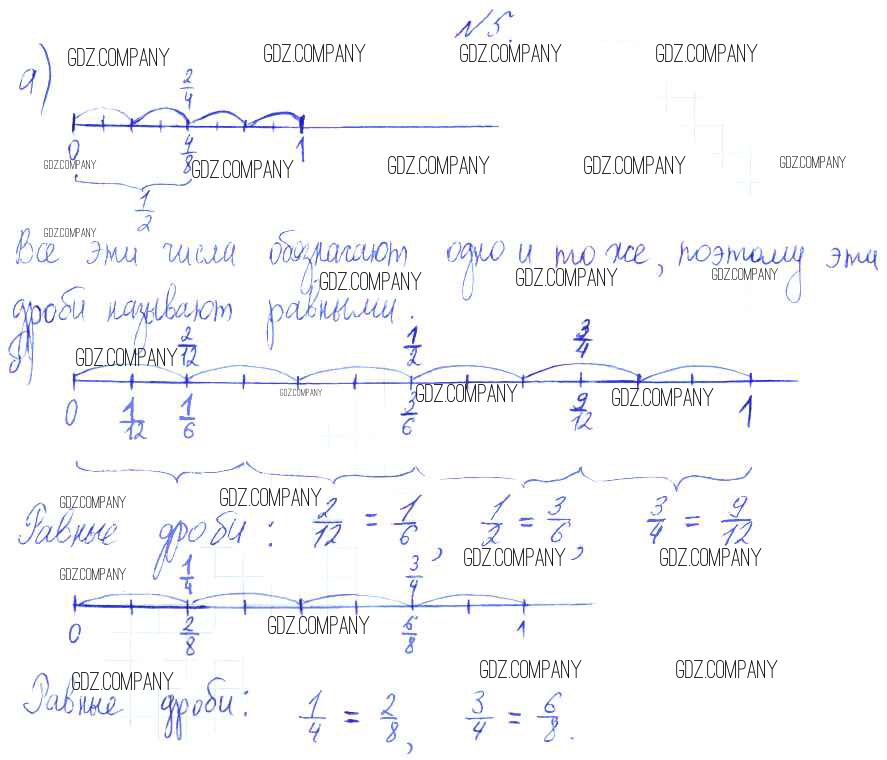 №5.
GDZ.COMPANY GDZ.COMPANY GDZ.COMPANY GDZ.COMPANY
а)
2/4
0 4/8 1
GDZ.COMPANY GDZ.COMPANY GDZ.COMPANY GDZ.COMPANY GDZ.COMPANY
1/2
GDZ.COMPANY
Все эти числа обозначают одно и то же, поэтому эти
GDZ.COMPANY GDZ.COMPANY GDZ.COMPANY
дроби называют равными.
б)
GDZ.COMPANY 2/12 1/2 3/4
GDZ.COMPANY GDZ.COMPANY GDZ.COMPANY
0 1/12 1/6 3/6 9/12 1
GDZ.COMPANY GDZ.COMPANY
Равные дроби: 2/12 = 1/6, 1/2 = 3/6, 3/4 = 9/12
GDZ.COMPANY GDZ.COMPANY GDZ.COMPANY
1/4 3/4
0 2/8 GDZ.COMPANY 6/8 1
GDZ.COMPANY GDZ.COMPANY GDZ.COMPANY
Равные дроби: 1/4 = 2/8, 3/4 = 6/8.